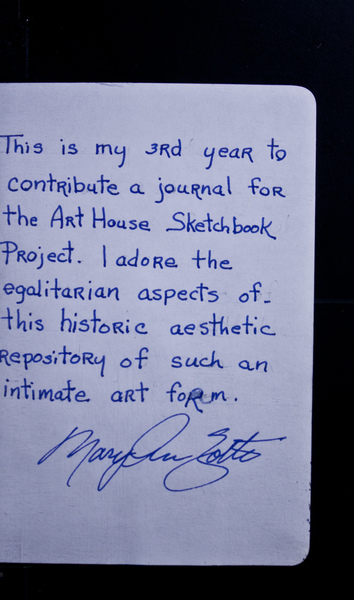 This is my 3rd year to
contribute a journal for
the Art House Sketchbook
Project. I adore the
egalitarian aspects of
this historic aesthetic
repository of such an
intimate art form.
Mary Ann